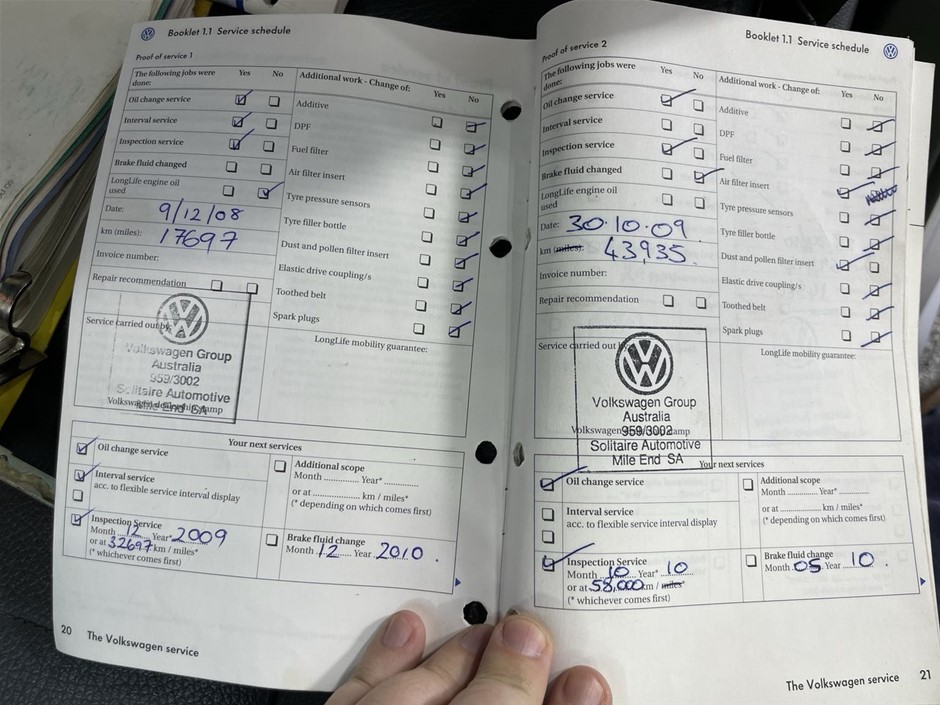 Booklet 1.1 Service schedule
Proof of service 1
The following jobs were done:
Yes No
Additional work - Change of:
Yes No
Oil change service
Interval service
Inspection service
Brake fluid changed
LongLife engine oil used
Date: 9/12/08
km (miles): 17697
Invoice number:
Repair recommendation
Additive
DPF
Fuel filter
Air filter insert
Tyre pressure sensors
Tyre filler bottle
Dust and pollen filter insert
Elastic drive coupling/s
Toothed belt
Spark plugs
Service carried out by:
LongLife mobility guarantee:
Volkswagen Group
Australia
959/3002
Solitaire Automotive
Mile End SA
Your next services
Oil change service
Interval service
acc. to flexible service interval display
Inspection Service
Month 12 Year* 2009
or at 32697 km / miles*
(* whichever comes first)
Additional scope
Month ............ Year* ............
or at ............ km / miles*
(* depending on which comes first)
Brake fluid change
Month 12 Year 2010
20 The Volkswagen service
Booklet 1.1 Service schedule
Proof of service 2
The following jobs were done:
Yes No
Additional work - Change of:
Yes No
Oil change service
Interval service
Inspection service
Brake fluid changed
LongLife engine oil used
Date: 30.10.09
km (miles): 43,935
Invoice number:
Repair recommendation
Additive
DPF
Fuel filter
Air filter insert
Tyre pressure sensors
Tyre filler bottle
Dust and pollen filter insert
Elastic drive coupling/s
Toothed belt
Spark plugs
Service carried out
LongLife mobility guarantee:
Volkswagen Group
Australia
959/3002
Solitaire Automotive
Mile End SA
Your next services
Oil change service
Interval service
acc. to flexible service interval display
Inspection Service
Month 10 Year* 10
or at 58,000 km / miles*
(* whichever comes first)
Additional scope
Month ............ Year* ............
or at ............ km / miles*
(* depending on which comes first)
Brake fluid change
Month 05 Year 10
The Volkswagen service 21